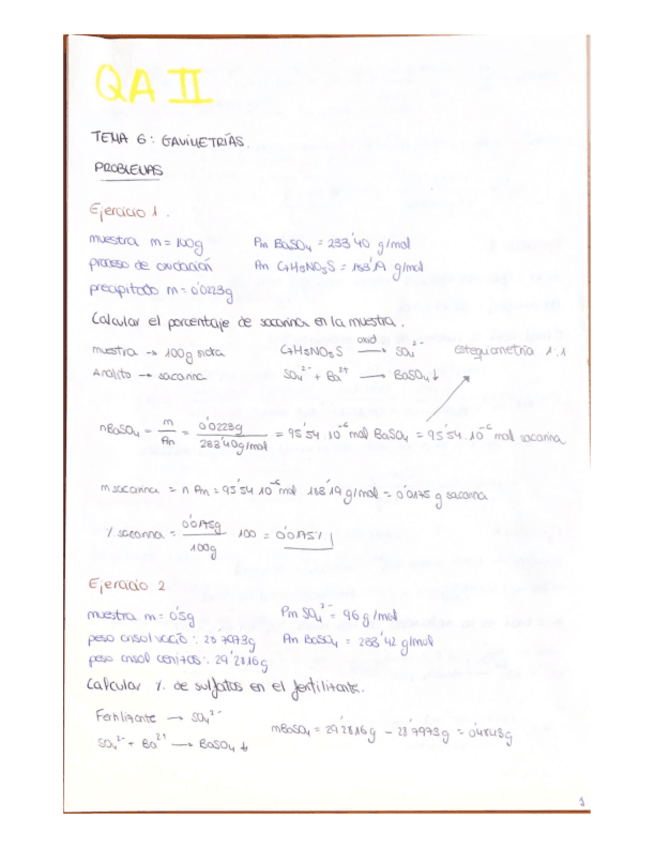 QA II
TEMA 6: GAVIMETRÍAS.
PROBLEMAS
Ejercicio 1.
muestra m = 100g Pm BaSO₄ = 233'40 g/mol
proceso de oxidación Pm C7H5NO3S = 183'19 g/mol
precipitado m = 0'0223g
Calcular el porcentaje de sacarina en la muestra.
muestra → 100g C7H5NO3S oxid → SO₄²⁻ estequiometría 1:1
Analito → sacarina SO₄²⁻ + Ba²⁺ → BaSO₄↓
nBaSO₄ = m/Pm = 0'0223g/233'40g/mol = 95'54·10⁻⁶ mol BaSO₄ = 95'54·10⁻⁶ mol sacarina
m sacarina = n Pm = 95'54·10⁻⁶ mol · 183'19 g/mol = 0'0175 g sacarina
% sacarina = 0'0175g/100g · 100 = 0'0175%
Ejercicio 2
muestra m = 0'5g Pm SO₄²⁻ = 96 g/mol
peso crisol vacío: 28'7973g Pm BaSO₄ = 233'42 g/mol
peso crisol cenizas: 29'2816g
Calcular % de sulfatos en el fertilizante.
Fertilizante → SO₄²⁻
SO₄²⁻ + Ba²⁺ → BaSO₄↓ mBaSO₄ = 29'2816g - 28'7973g = 0'4843g
1